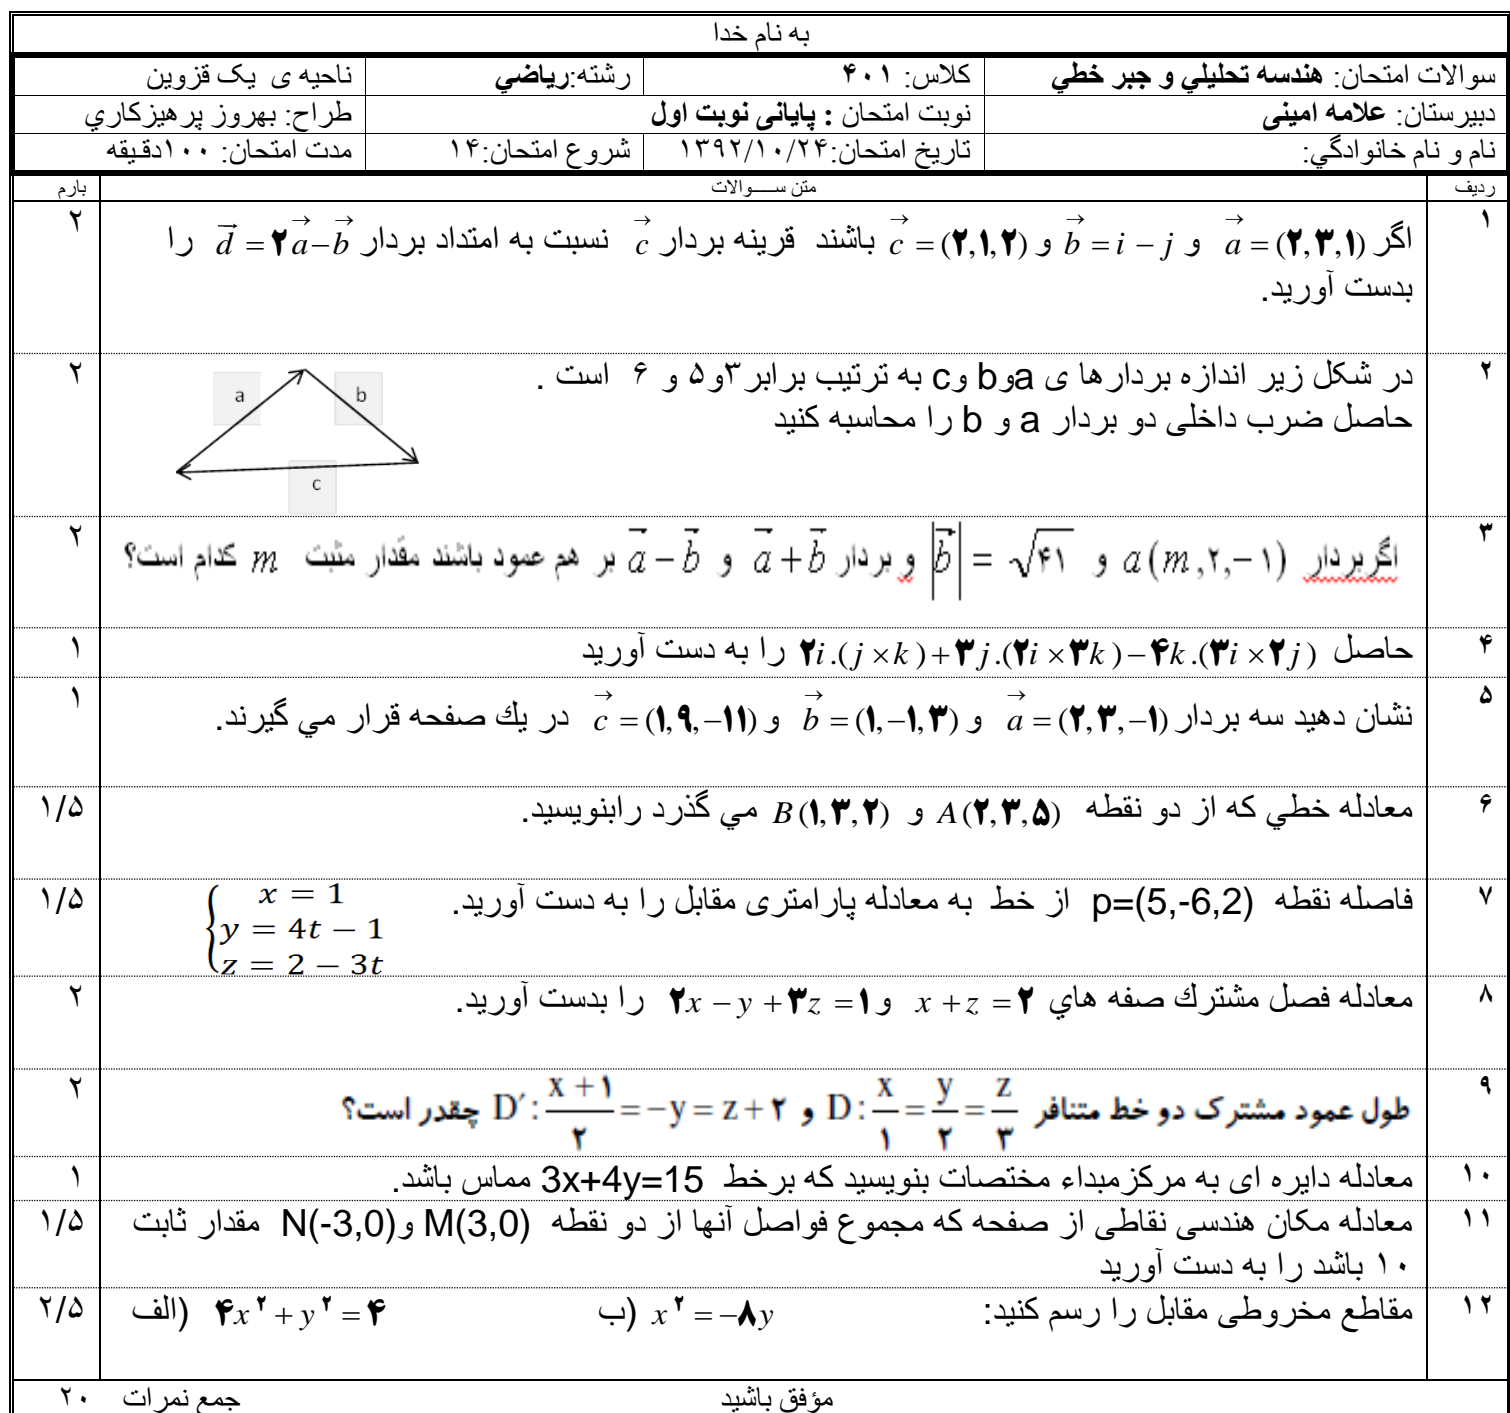 به نام خدا
سوالات امتحان: هندسه تحليلي و جبر خطي کلاس: ۴۰۱ رشته:رياضي ناحیه ی یک قزوین
دبیرستان: علامه امینی نوبت امتحان : پایانی نوبت اول طراح: بهروز پرهيزکاري
نام و نام خانوادگي: تاریخ امتحان:۱۳۹۲/۱۰/۲۴ شروع امتحان:۱۴ مدت امتحان: ۱۰۰دقیقه
رديف متن ســـوالات بارم
۱ اگر a = (۲,۳,۱) و b = i − j و c = (۲,۱,۲) باشند قرینه بردار c نسبت به امتداد بردار d = ۲a−b را ۲
بدست آورید.
۲ در شکل زیر اندازه بردارها ی aوb وc به ترتیب برابر۳و۵ و ۶ است . ۲
حاصل ضرب داخلی دو بردار a و b را محاسبه کنید
a b
c
۳ اگربردار a(m,۲,−۱) و |b| = √۴۱ و بردار a+b و a−b بر هم عمود باشند مقدار مثبت m کدام است؟ ۲
۴ حاصل ۲i.(j×k)+۳j.(۲i×۳k)−۴k.(۳i×۲j) را به دست آورید ۱
۵ نشان دهيد سه بردار a = (۲,۳,−۱) و b = (۱,−۱,۳) و c = (۱,۹,−۱۱) در يك صفحه قرار مي گيرند. ۱
۶ معادله خطي که از دو نقطه A(۲,۳,۵) و B(۱,۳,۲) مي گذرد رابنويسيد. ۱/۵
۷ فاصله نقطه p=(5,-6,2) از خط به معادله پارامتری مقابل را به دست آورید. ۱/۵
x = 1
y = 4t − 1
z = 2 − 3t
۸ معادله فصل مشترك صفه هاي x + z = ۲ و ۲x − y + ۳z = ۱ را بدست آوريد. ۲
۹ طول عمود مشترک دو خط متنافر D: x/۱ = y/۲ = z/۳ و D′: (x+۱)/۲ = −y = z+۲ چقدر است؟ ۲
۱۰ معادله دایره ای به مرکزمبداء مختصات بنویسید که برخط 3x+4y=15 مماس باشد. ۱
۱۱ معادله مکان هندسی نقاطی از صفحه که مجموع فواصل آنها از دو نقطه M(3,0) وN(-3,0) مقدار ثابت ۱/۵
۱۰ باشد را به دست آورید
۱۲ مقاطع مخروطی مقابل را رسم کنید: ب) x² = −۸y الف) ۴x² + y² = ۴ ۲/۵
مؤفق باشید جمع نمرات ۲۰